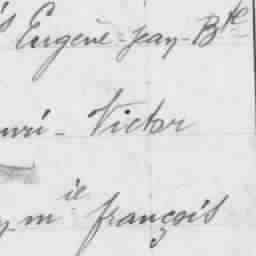 s Eugène-Jean-Bte
nri - Victor
y-mie françois